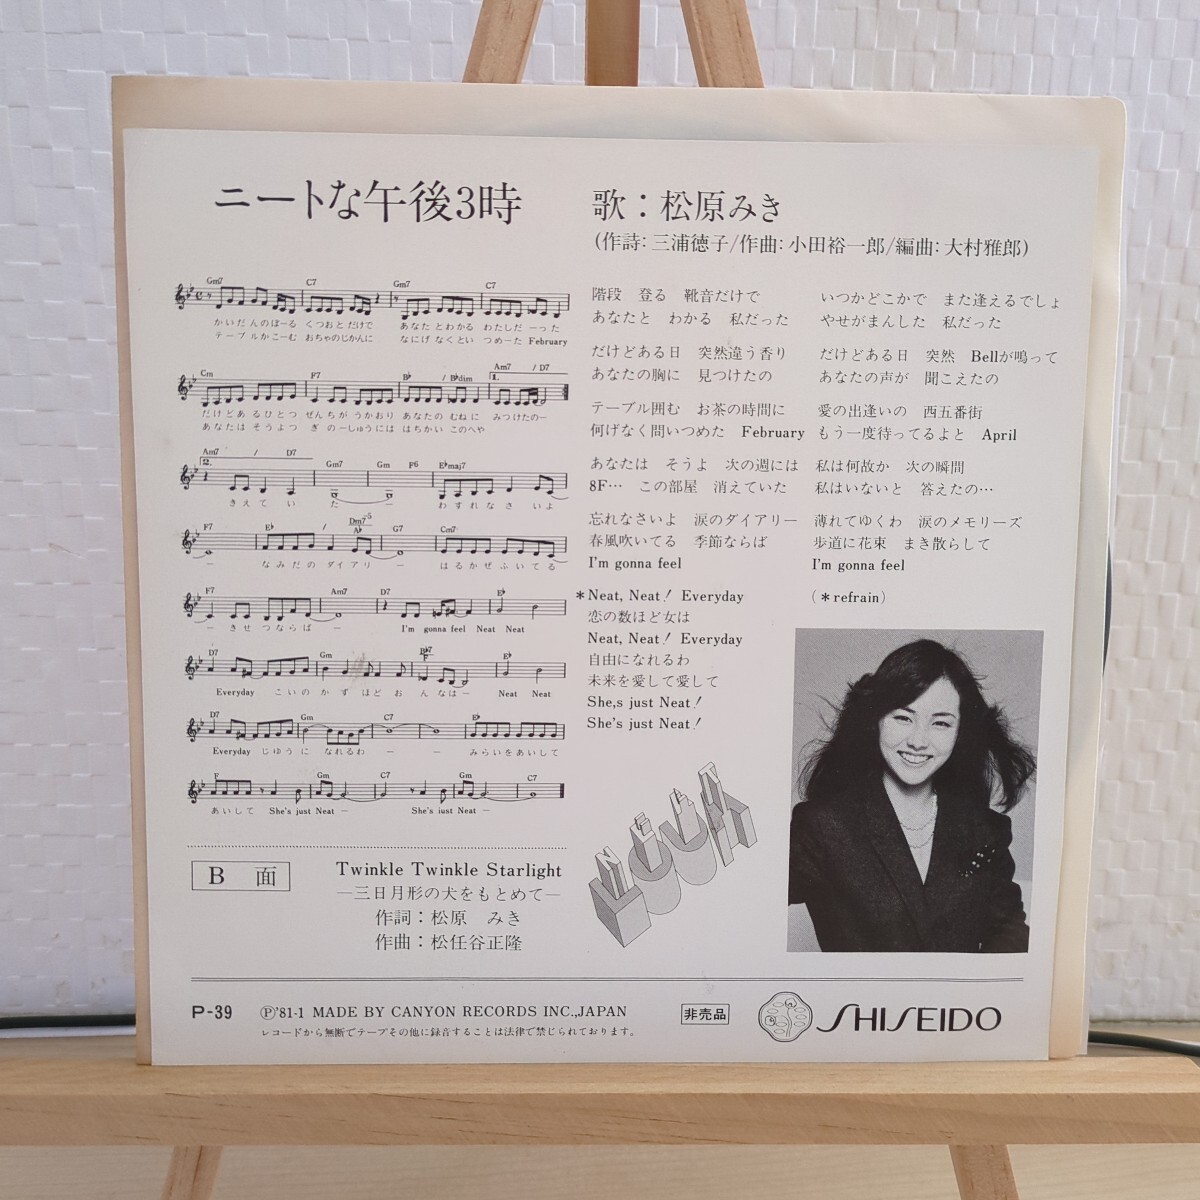 ニートな午後3時
歌：松原みき
(作詩：三浦徳子/作曲：小田裕一郎/編曲：大村雅郎)
Gm7 C7 Gm7 C7
かいだんのぼーる くつおとだけで あなたとわかる わたしだーった
テーブルかこーむ おちゃのじかんに なにげなくとい つめーた February
Cm F7 B♭ /B♭dim Am7 /D7
1.
だけどあるひとつ ぜんちがうかおり あなたの むねに みつけたのー
あなたはそうよつ ぎのーしゅうには はちかい このへや
Am7 / D7 Gm7 Gm F6 E♭maj7
2.
きえてい た ー わすれなさいよ
F7 E♭ / Dm7-5 A♭ G7 Cm7
ー なみだのダイアリ ー はるかぜふいてる
F7 Am7 D7 E♭
ーきせつならばー I'm gonna feel Neat Neat
D7 Gm B♭7 F E♭
Everyday こいのかずほどおんなはー Neat Neat
D7 Gm C7 E♭
Everyday じゆうに なれるわ ー ー みらいをあいして
F Gm C7 Gm C7
あいして She's just Neat ー She's just Neat ー
階段 登る 靴音だけで
あなたと わかる 私だった
だけどある日 突然違う香り
あなたの胸に 見つけたの
テーブル囲む お茶の時間に
何げなく問いつめた February
あなたは そうよ 次の週には
8F… この部屋 消えていた
忘れなさいよ 涙のダイアリー
春風吹いてる 季節ならば
I'm gonna feel
＊Neat, Neat! Everyday
恋の数ほど女は
Neat, Neat! Everyday
自由になれるわ
未来を愛して愛して
She,s just Neat!
She's just Neat!
いつかどこかで また逢えるでしょ
やせがまんした 私だった
だけどある日 突然 Bellが鳴って
あなたの声が 聞こえたの
愛の出逢いの 西五番街
もう一度待ってるよと April
私は何故か 次の瞬間
私はいないと 答えたの…
薄れてゆくわ 涙のメモリーズ
歩道に花束 まき散らして
I'm gonna feel
(＊refrain)
B 面
Twinkle Twinkle Starlight
―三日月形の犬をもとめて―
作詞：松原 みき
作曲：松任谷正隆
P-39
Ⓟ'81-1 MADE BY CANYON RECORDS INC.,JAPAN
レコードから無断でテープその他に録音することは法律で禁じられております。
非売品
SHISEIDO